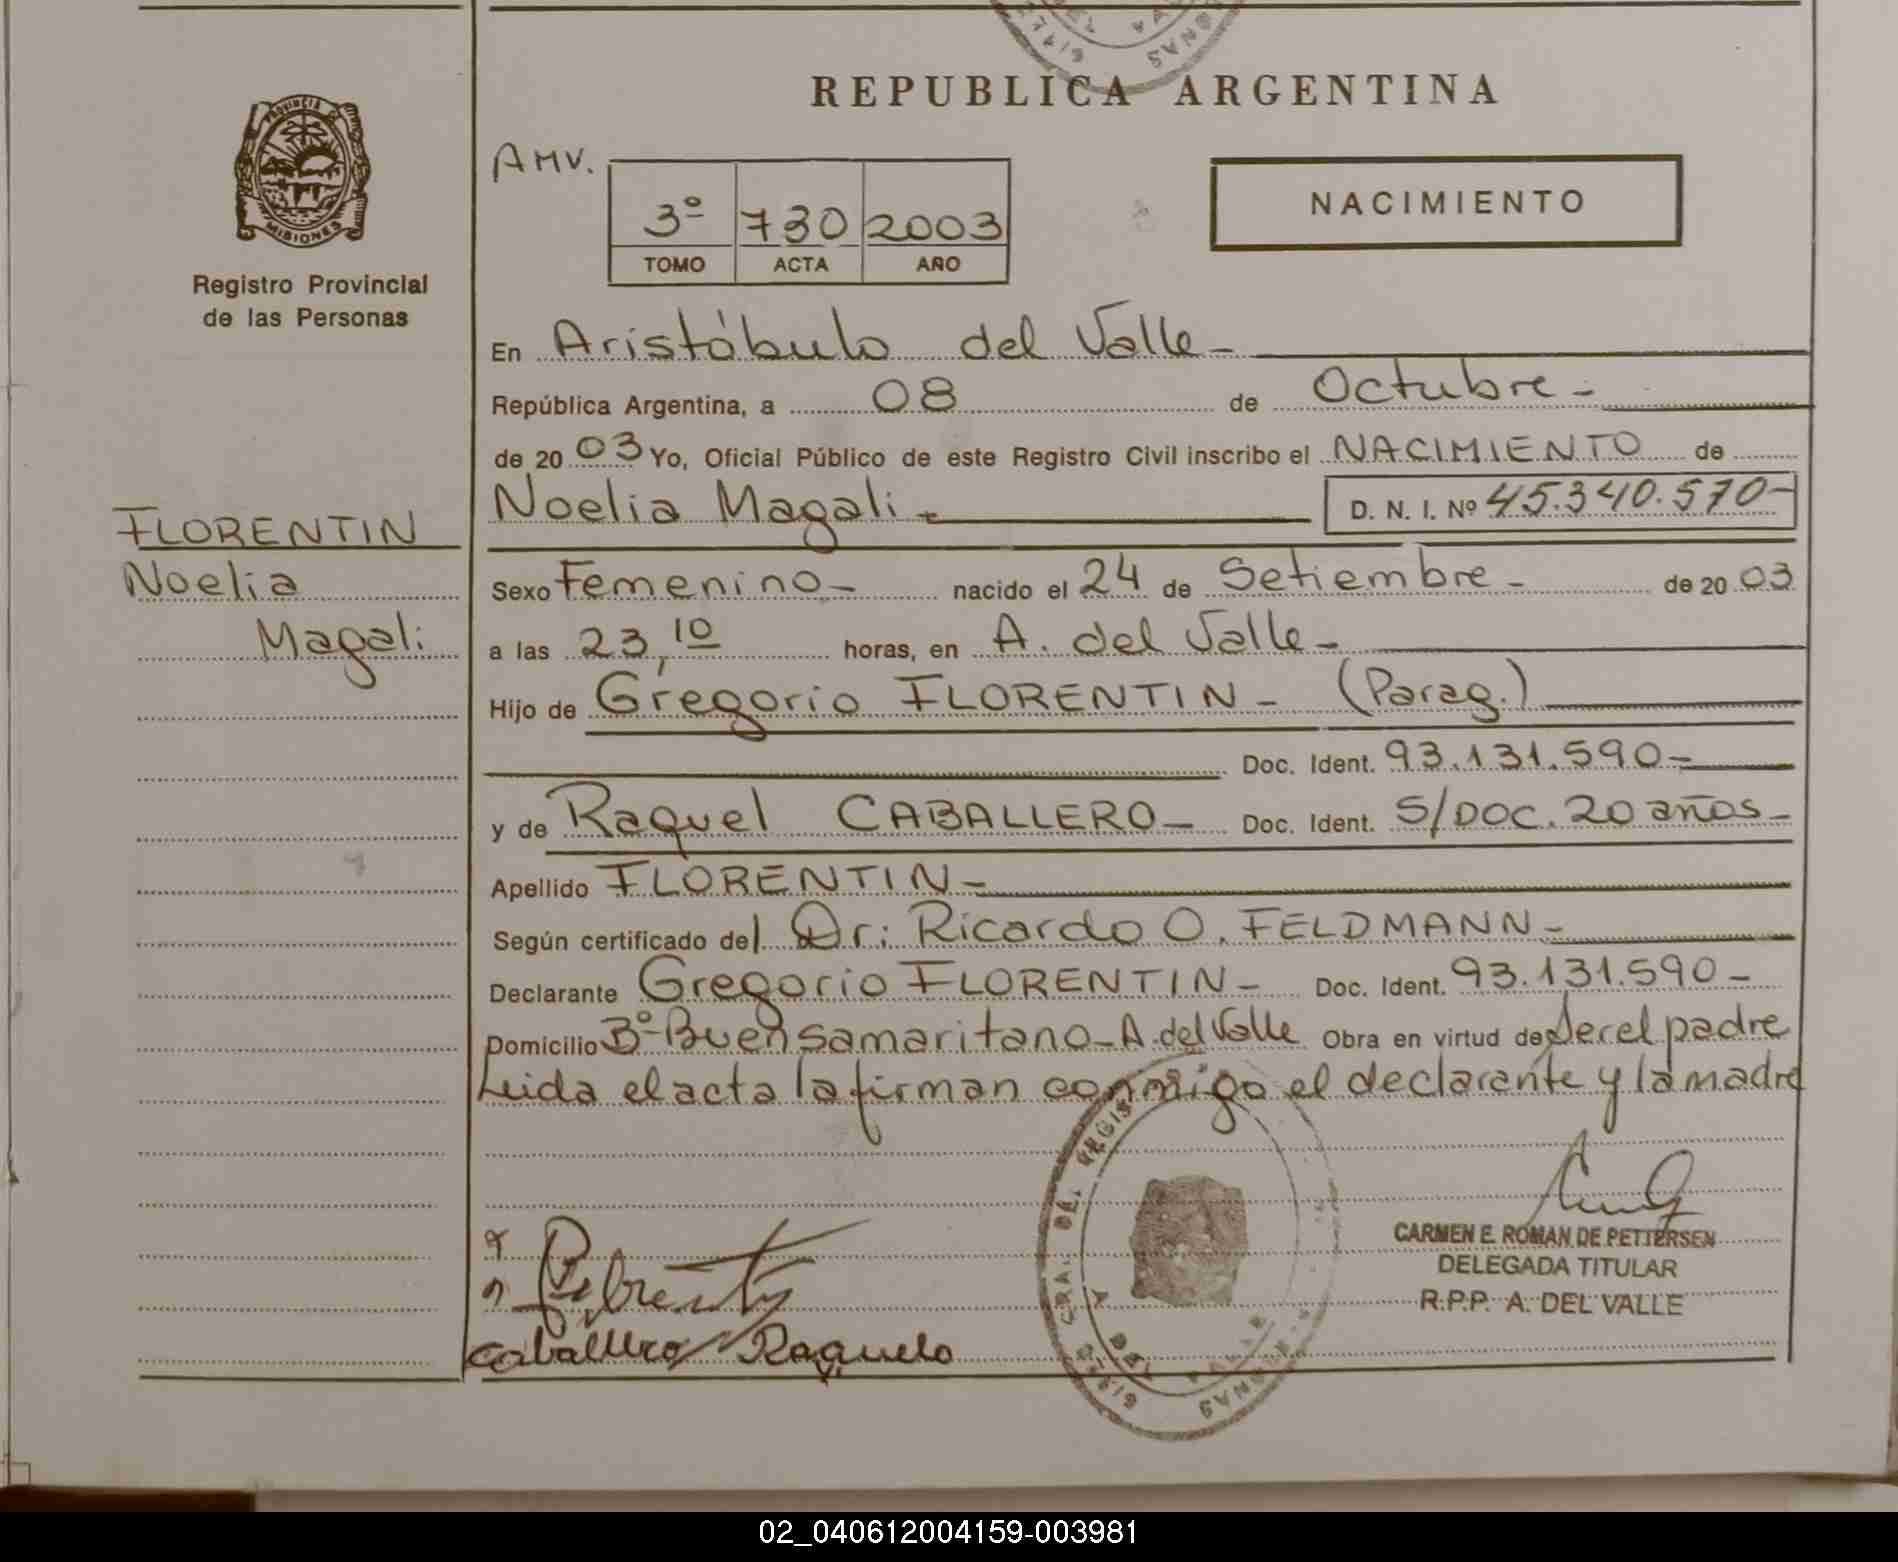 REPUBLICA ARGENTINA
PROVINCIA DE
MISIONES
Registro Provincial
de las Personas
AMV.
3º 730 2003
TOMO ACTA AÑO
NACIMIENTO
En Aristóbulo del Valle-
República Argentina, a 08 de Octubre-
de 20 03 Yo, Oficial Público de este Registro Civil inscribo el NACIMIENTO de
Noelia Magali- D. N. I. Nº 45.340.570-
FLORENTIN
Noelia
Magali
Sexo Femenino- nacido el 24 de Setiembre- de 20 03
a las 23,10 horas, en A. del Valle-
Hijo de Gregorio FLORENTIN- (Parag.)
Doc. Ident. 93.131.590-
y de Raquel CABALLERO- Doc. Ident. S/DOC. 20 años-
Apellido FLORENTIN-
Según certificado del Dr: Ricardo O. FELDMANN-
Declarante Gregorio FLORENTIN- Doc. Ident. 93.131.590-
Domicilio Bº Buen samaritano-A.del Valle Obra en virtud de Ser el padre
Leida el acta la firman conmigo el declarante y la madre
CARMEN E. ROMAN DE PETTERSEN
DELEGADA TITULAR
R.P.P. A. DEL VALLE
Caballero Raquel
02_040612004159-003981